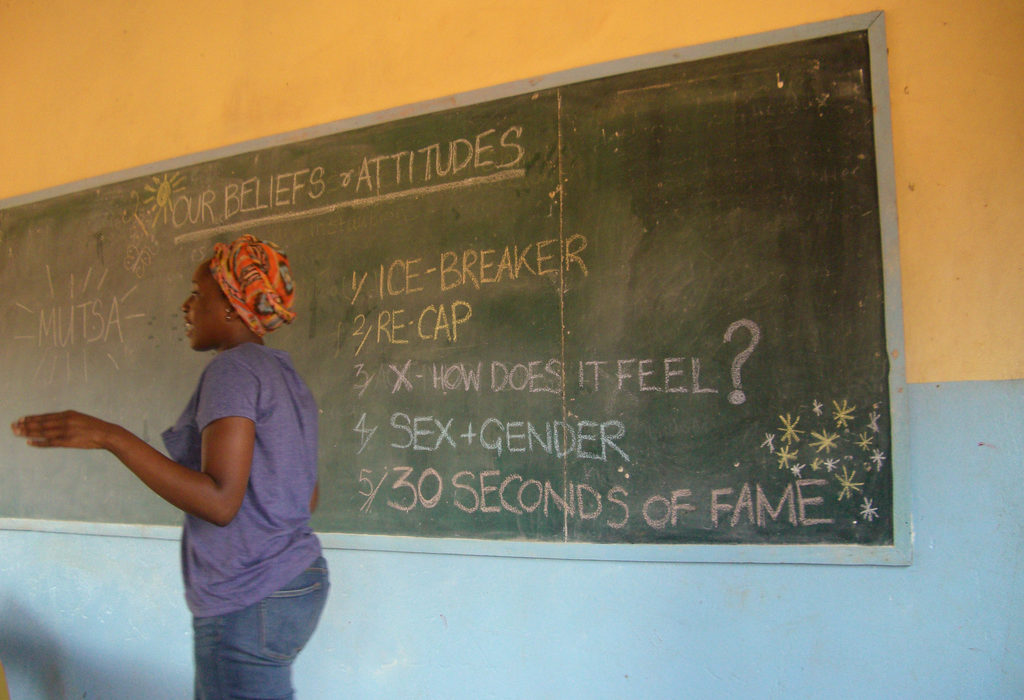 OUR BELIEFS & ATTITUDES
MUTSA
1/ ICE-BREAKER
2/ RE-CAP
3/ X-HOW DOES IT FEEL?
4/ SEX+GENDER
5/ 30 SECONDS OF FAME